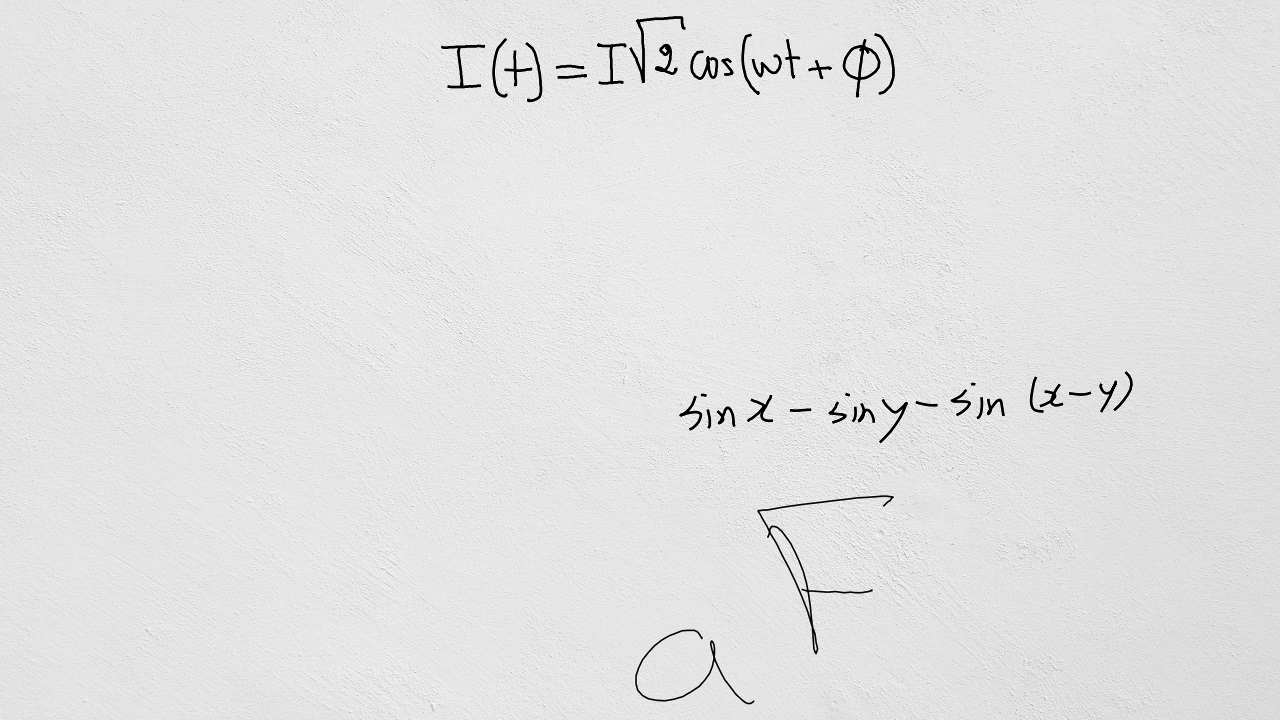 I(t) = I√2 cos(wt + ϕ)
sin x - sin y - sin (x-y)
F
a